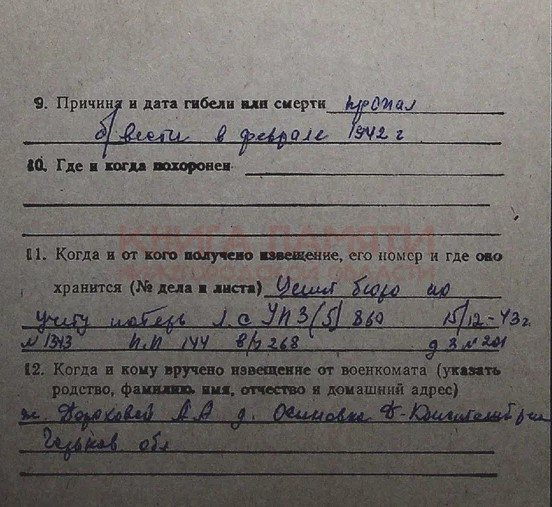 9. Причина и дата гибели или смерти пропал
б/вести в феврале 1942 г
10. Где и когда похоронен
КНИГА ПАМЯТИ
НИЖЕГОРОДСКОЙ ОБЛАСТИ
11. Когда и от кого получено извещение, его номер и где оно
хранится (№ дела и листа) Центр бюро по
учету потерь л.с УПЗ(5) 860 15/12-43г.
№1343 п.п 144 в/з 268 д 3 № 201
12. Когда и кому вручено извещение от военкомата (указать
родство, фамилию, имя, отчество и домашний адрес)
ж. Дороховой А А д. Осиновка Д-Константин
Горьков обл